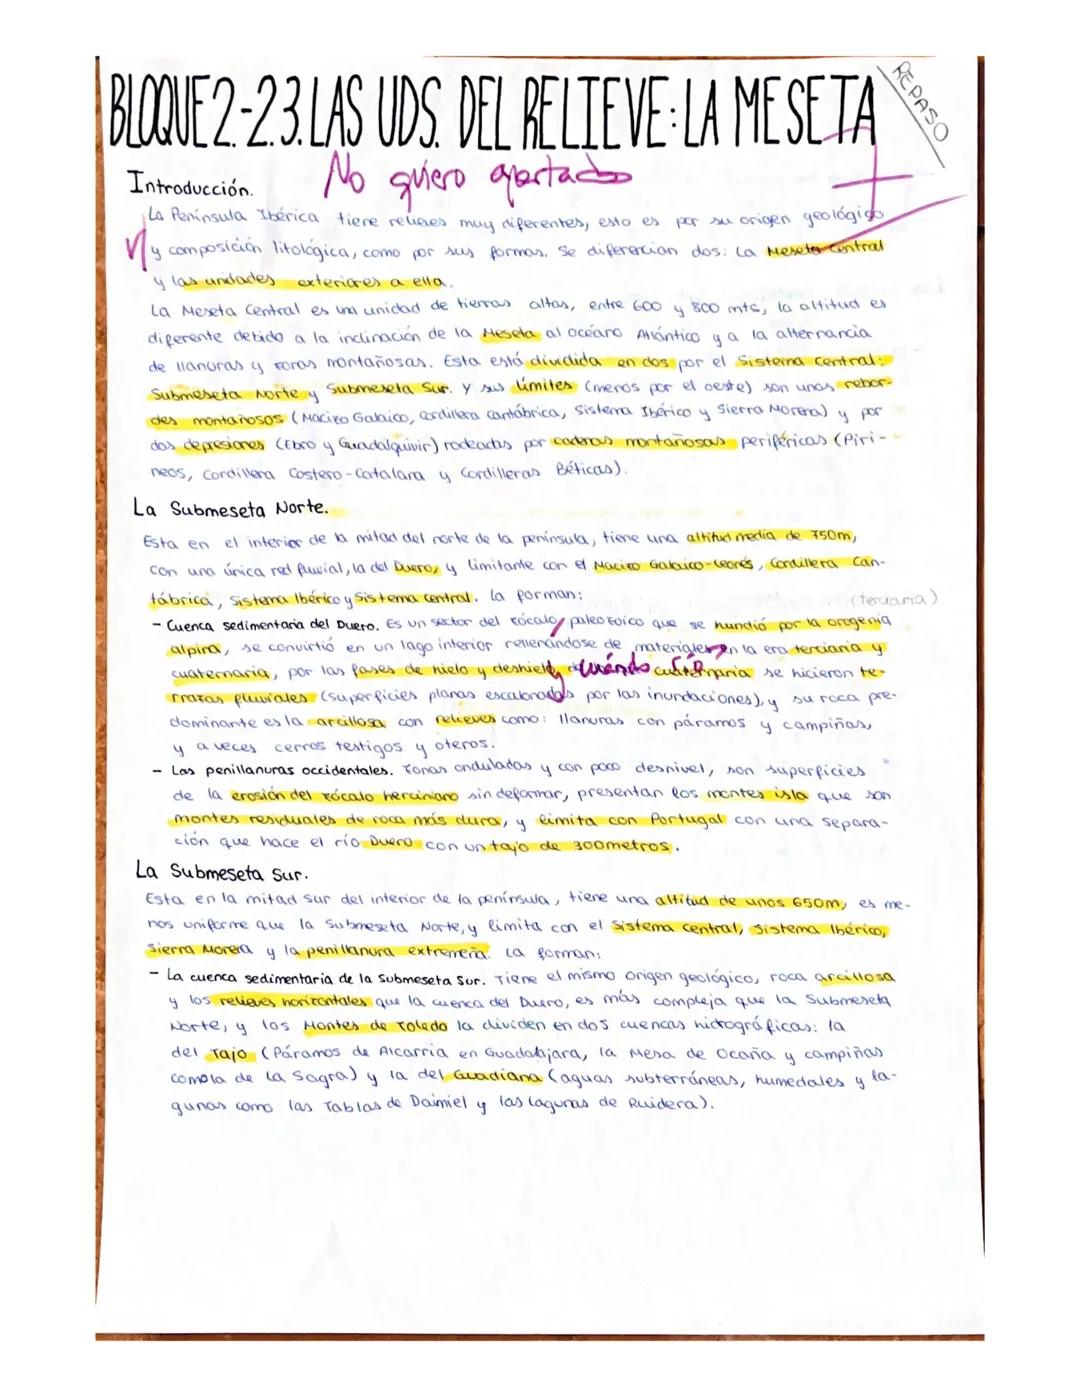 BLOQUE 2.-2.3. LAS UDS. DEL RELIEVE: LA MESETA
REPASO
No quiero apartados
Introducción.
La Península Ibérica tiene relieves muy diferentes, esto es por su origen geológico
y composición litológica, como por sus formas. Se diferencian dos: La Meseta Central
y las unidades exteriores a ella.
La Meseta Central es una unidad de tierras altas, entre 600 y 800 mts, la altitud es
diferente debido a la inclinación de la Meseta al océano Atlántico y a la alternancia
de llanuras y zonas montañosas. Esta está dividida en dos por el Sistema Central:
Submeseta Norte y Submeseta Sur. Y sus límites (menos por el oeste) son unos rebor-
des montañosos (Macizo Galaico, Cordillera Cantábrica, Sistema Ibérico y Sierra Morena) y por
dos depresiones (Ebro y Guadalquivir) rodeadas por cadenas montañosas periféricas (Piri-
neos, Cordillera Costero-Catalana y Cordilleras Béticas).
La Submeseta Norte.
Esta en el interior de la mitad del norte de la península, tiene una altitud media de 750m,
con una única red fluvial, la del Duero, y limitante con el Macizo Galaico-Leonés, Cordillera Can-
tábrica, Sistema Ibérico y Sistema Central. La forman:
(Terciaria)
- Cuenca sedimentaria del Duero. Es un sector del zócalo paleozoico que se hundió por la orogenia
alpina, se convirtió en un lago interior rellenándose de materiales en la era terciaria y
cuaternaria, por las fases de hielo y deshielo, cuándo cuaternaria se hicieron te-
rrazas fluviales (superficies planas escalonadas por las inundaciones), y su roca pre-
dominante es la arcillosa con relieves como: llanuras con páramos y campiñas,
y a veces cerros testigos y oteros.
- Las penillanuras occidentales. Zonas onduladas y con poco desnivel, son superficies
de la erosión del zócalo herciniano sin deformar, presentan los montes isla que son
montes residuales de roca más dura, y limita con Portugal con una separa-
ción que hace el río Duero con un tajo de 300metros.
La Submeseta Sur.
Esta en la mitad sur del interior de la península, tiene una altitud de unos 650m, es me-
nos uniforme que la Submeseta Norte, y limita con el Sistema Central, Sistema Ibérico,
Sierra Morena y la penillanura extremeña. La forman:
- La cuenca sedimentaria de la Submeseta Sur. Tiene el mismo origen geológico, roca arcillosa
y los relieves horizontales que la cuenca del Duero, es más compleja que la Submeseta
Norte, y los Montes de Toledo la dividen en dos cuencas hidrográficas: la
del Tajo (Páramos de Alcarria en Guadalajara, la Mesa de Ocaña y campiñas
como la de La Sagra) y la del Guadiana (aguas subterráneas, humedales y la-
gunas como las Tablas de Daimiel y las lagunas de Ruidera).